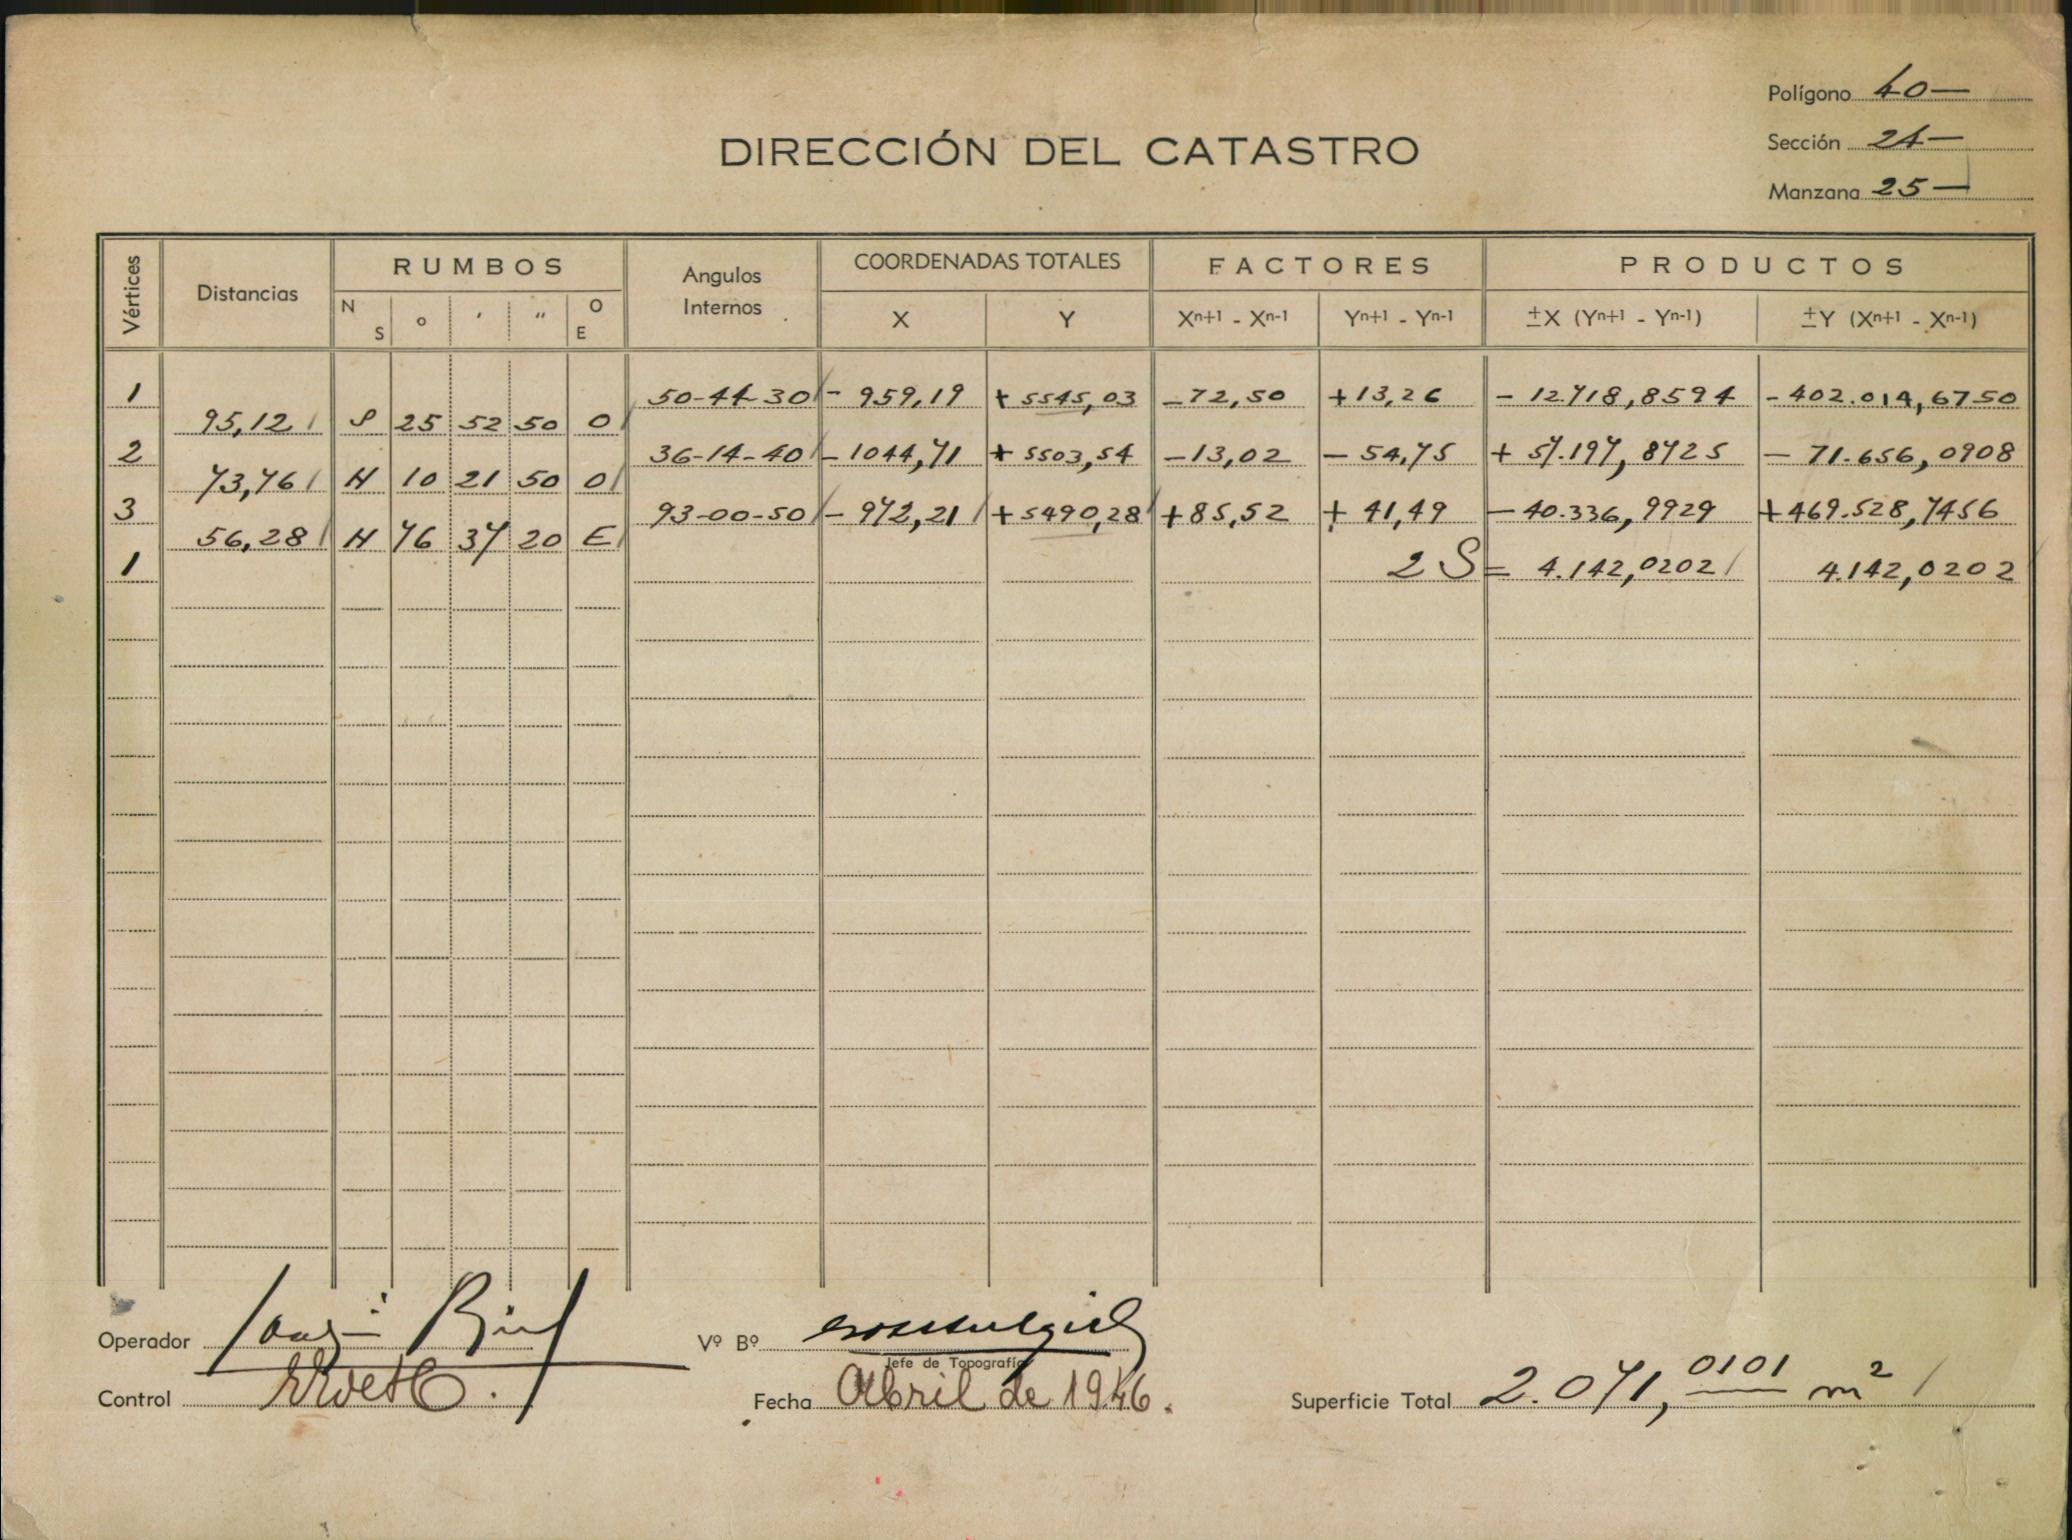 Polígono 40—
DIRECCIÓN DEL CATASTRO
Sección 24—
Manzana 25—
Vértices Distancias RUMBOS Angulos Internos COORDENADAS TOTALES FACTORES PRODUCTOS
N S o ′ ″ O E X Y Xn+1 - Xn-1 Yn+1 - Yn-1 ±X (Yn+1 - Yn-1) ±Y (Xn+1 - Xn-1)
1 50-44-30 - 959,19 + 5545,03 -72,50 +13,26 - 12.718,8594 - 402.014,6750
95,12 S 25 52 50 O
2 36-14-40 - 1044,71 + 5503,54 -13,02 - 54,75 + 57.197,8725 - 71.656,0908
73,76 N 10 21 50 O
3 93-00-50 - 972,21 + 5490,28 +85,52 + 41,49 - 40.336,9929 +469.528,7456
56,28 N 76 37 20 E
1 2 S= 4.142,0202 4.142,0202
Operador Vº Bº
Jefe de Topografía
Control Fecha Abril de 1946. Superficie Total 2.071,0101 m2